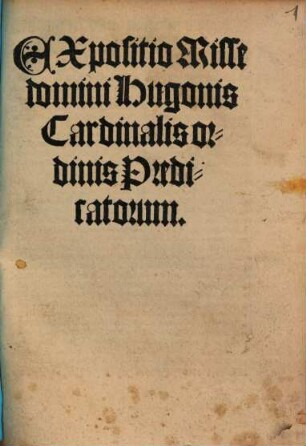 1
EXpositio Misse
domini Hugonis
Cardinalis or⸗
dinis Predi⸗
catorum.